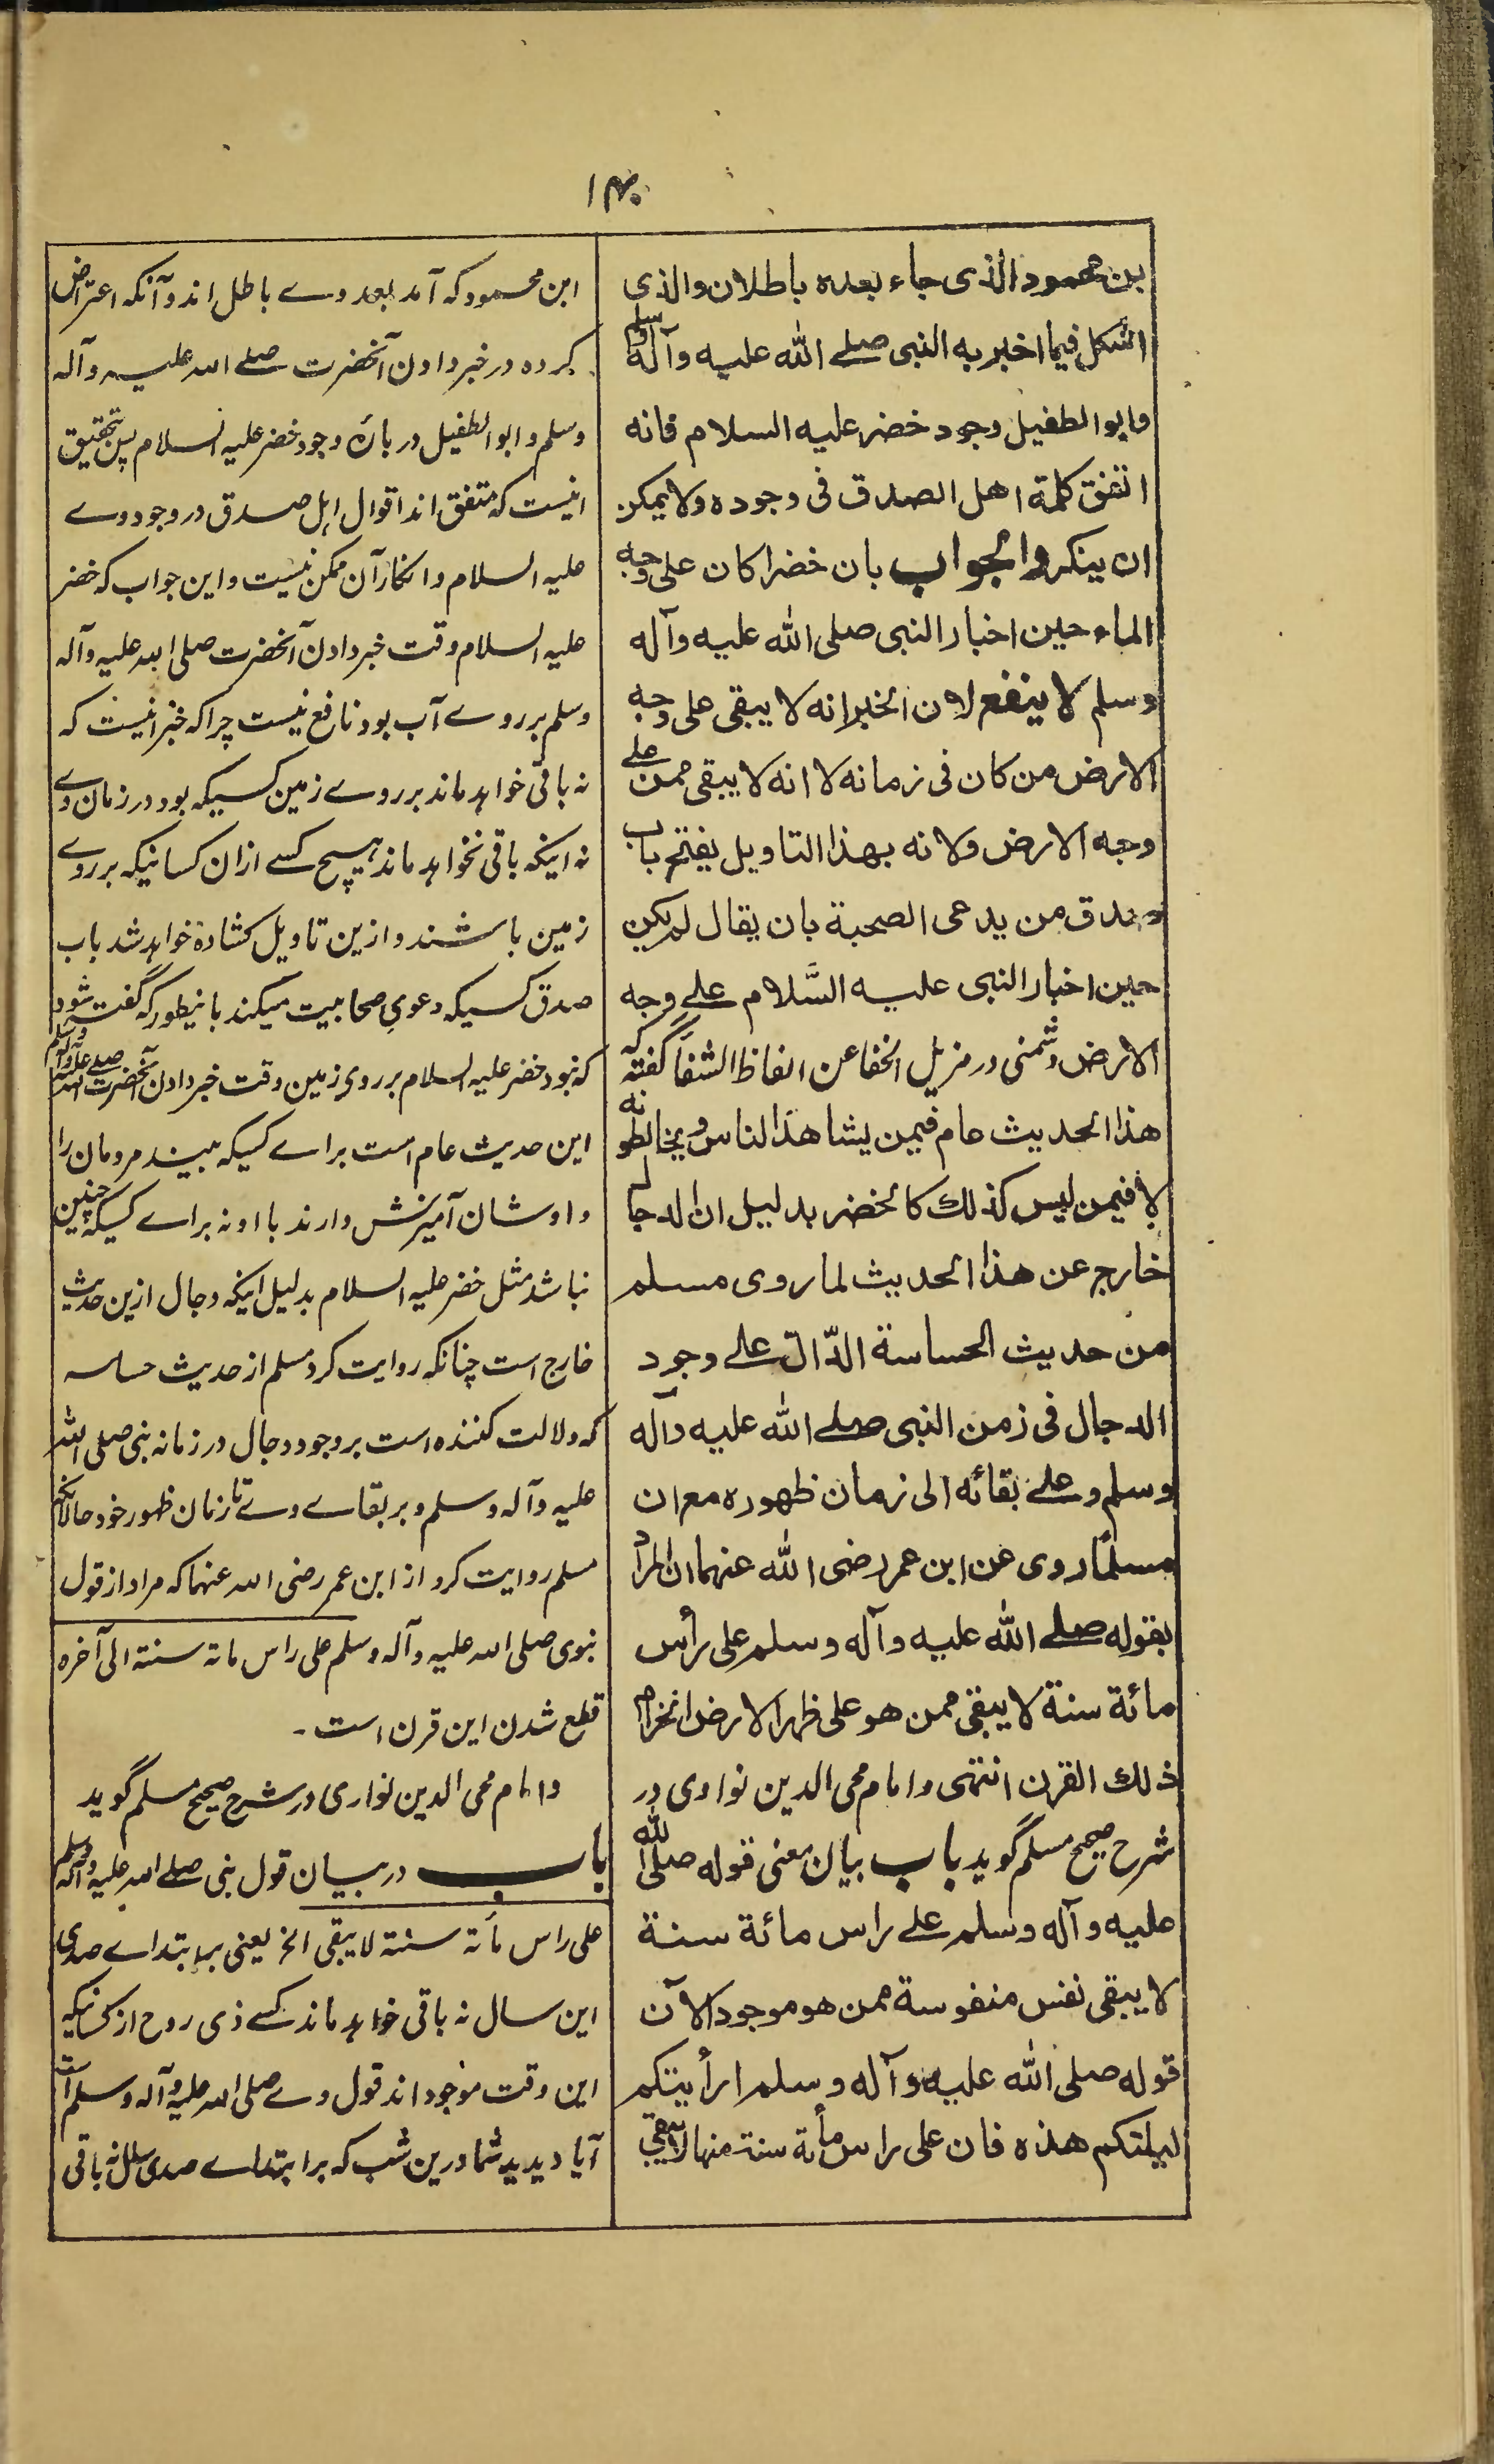 ۱۴۰
بن محمود الذی جاء بعده باطلان والذی
اشکل فیما اخبر به النبی صلے الله علیه وآله وسلم
وابو الطفیل وجود خضر علیه السلام فانه
اتفق کلمة اهل الصدق فی وجوده ولا یمکن
ان ینکر والجواب بان خضرا کان علی وجه
الماء حین اخبار النبی صلی الله علیه وآله
وسلم لا ینفع لان الخبر انه لا یبقی علی وجه
الارض من کان فی زمانه لا انه لا یبقی ممن علے
وجه الارض ولانه بهذا التاویل یفتح باب
صدق من یدعی الصحبة بان یقال لم یکن
حین اخبار النبی علیه السَّلام علے وجه
الارض وشمنی در مزیل الخفا عن الفاظ الشفا گفته که
هذا الحدیث عام فیمن یشاهد الناس ویخالطونه
لا فیمن لیس کذلك کالخضر بدلیل ان الدجال
خارج عن هذا الحدیث لما روی مسلم
من حدیث الحساسة الدّال علے وجود
الدجال فی زمن النبی صلے الله علیه وآله
وسلم وعلے بقائه الی زمان ظهوره مع ان
مسلمًا روی عن ابن عمر رضی الله عنهما ان المراد
بقوله صلے الله علیه وآله وسلم علی رأس
مائة سنة لا یبقی ممن هو علی ظهر الارض انخرام
ذلك القرن انتهی وامام محی الدین نواوی در
شرح صحیح مسلم گوید باب بیان معنی قوله صلی الله
علیه وآله وسلم علے راس مائة سنة
لا یبقی نفس منفوسة ممن هو موجود الآن
قوله صلی الله علیه وآله وسلم ارأیتکم
لیلتکم هذه فان علی راس مأة سنة منها لا یبقی
ابن محمود که آمد بعد وے باطل اند و آنکه اعتراض
کرده در خبر دادن آنحضرت صلے الله علیه وآله
وسلم و ابو الطفیل در بارۂ وجود خضر علیه السلام پس تحقیق
اینست که متفق اند اقوال اہل صدق در وجود وے
علیه السلام و انکار آن ممکن نیست و این جواب که خضر
علیه السلام وقت خبر دادن آنحضرت صلی الله علیه وآله
وسلم بر روے آب بود نافع نیست چراکه خبر اینست که
نه باقی خواہد ماند بر روے زمین کسیکه بود در زمان وے
نه اینکه باقی نخواہد ماند ہیچ کسے ازان کسانیکه بر روے
زمین باشند و ازین تاویل کشادہ خواہد شد باب
صدق کسیکه دعوی صحابیت میکند باینطور که گفته شود
که نبود خضر علیه السلام بر روی زمین وقت خبر دادن آنحضرت صلے الله علیه وآله وسلم
این حدیث عام است براے کسیکه ببیند مردمان را
و اوشان آمیزش دارند با او نه براے کسیکه چنین
نباشد مثل خضر علیه السلام بدلیل اینکه دجال ازین حدیث
خارج است چنانکه روایت کرد مسلم از حدیث حساسه
که دلالت کننده است بر وجود دجال در زمانه نبی صلی الله
علیه وآله وسلم و بر بقاے وے تا زمان ظهور خود حالانکه
مسلم روایت کرد از ابن عمر رضی الله عنهما که مراد از قول
نبوی صلی الله علیه وآله وسلم علی راس مائة سنة الی آخره
قطع شدن این قرن است ۔
و امام محی الدین نواوی در شرح صحیح مسلم گوید
باب در بیان قول نبی صلے الله علیه وآله وسلم
علی راس مأته سنة لا یبقی الخ یعنی بر ابتداے صدی
این سال نه باقی خواہد ماند کسے ذی روح از کسانیکه
این وقت موجود اند قول وے صلی الله علیه وآله وسلم است
آیا دیدید شما درین شب که بر ابتداے صدی سال نه باقی